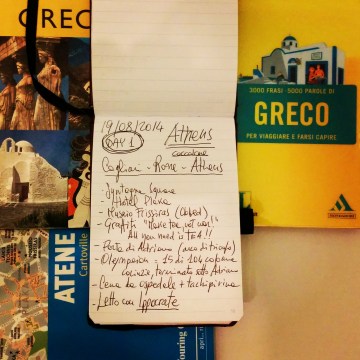 GREC
3000 FRASI 5000 PAROLE DI
GRECO
PER VIAGGIARE E FARSI CAPIRE
ATENE
Cartoville
Touring
apri...
19/08/2014
DAY 1
Athens
Cagliari - Rome - Athens
- Syntagma Square
Hotel Plaka
- Museio Frissiras (closed)
- Graffiti "Make tea, not war!"
All you need is TEA!!
- Porta di Adriano (arco di trionfo)
- Olympieion = 15 di 104 colonne
corinzie, terminato sotto Adriano
- Cena da ospedale + tachipirina
- Letto con Ippocrate